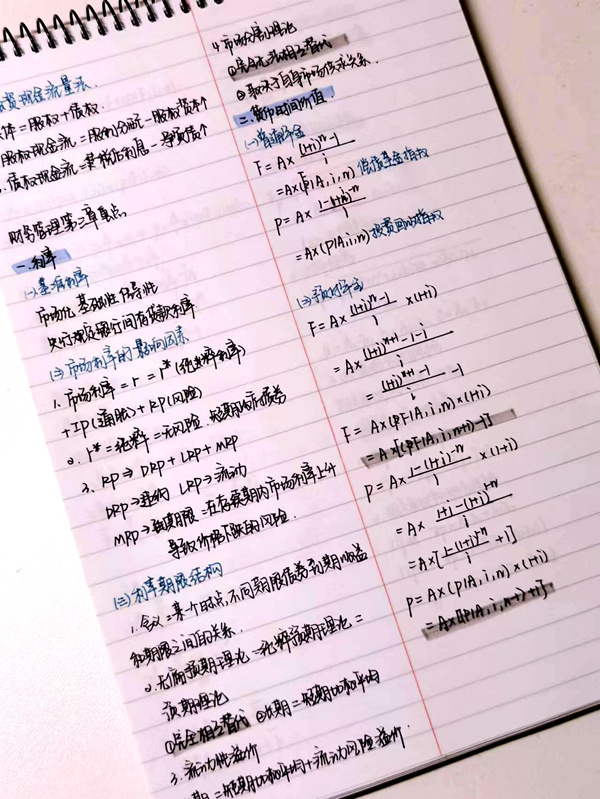 资现金流量法
体=股权+债权
股权现金流=股利分配-股权资本
债权现金流=
财务管理第二章重点
一.利率
(一)基准利率
市场化 基础性 传导性
(二)市场利率的影响因素
1.市场利率=r=r*(纯粹利率)
+IP(通胀)+RP(风险)
2.r*=纯粹=无风险.短期政府债券
3.RP⇒DRP+LRP+MRP
DRP→违约 LRP→流动
MRP→到期期限=在存续期内市场利率上升
导致价格下跌的风险.
(三)利率期限结构
1.含义=某个时点,不同期限债券到期收益
和期限之间的关系.
2.无偏预期理论=纯粹预期理论=
预期理论
①完全相互替代 ②长期=短期
3.流动性溢价
期=短期 平均+流动风险溢价.
4.市场分割理论
②取决于自身市场供求关系.
二.货币时间价值
(一)普通年金
F=A×\frac{(1+i)^n-1}{i}
=A×(F|A,i,n)偿债基金
P=A×\frac{1-(1+i)^{-n}}{i}
=A×(P|A,i,n)投资回收
(二)预付年金
F=A×\frac{(1+i)^n-1}{i}×(1+i)
=A×\frac{(1+i)^{n+1}-1-i}{i}
=\frac{(1+i)^{n+1}-1}{i}-1
F=A×(F|A,i,n)×(1+i)
=A×[(F|A,i,n+1)-1]
P=A×\frac{1-(1+i)^{-n}}{i}×(1+i)
=A×\frac{1+i-(1+i)^{1-n}}{i}
=A×[\frac{1-(1+i)^{1-n}}{i}+1]
P=A×(P|A,i,n)×(1+i)
=A×[(P|A,i,n-1)+1]